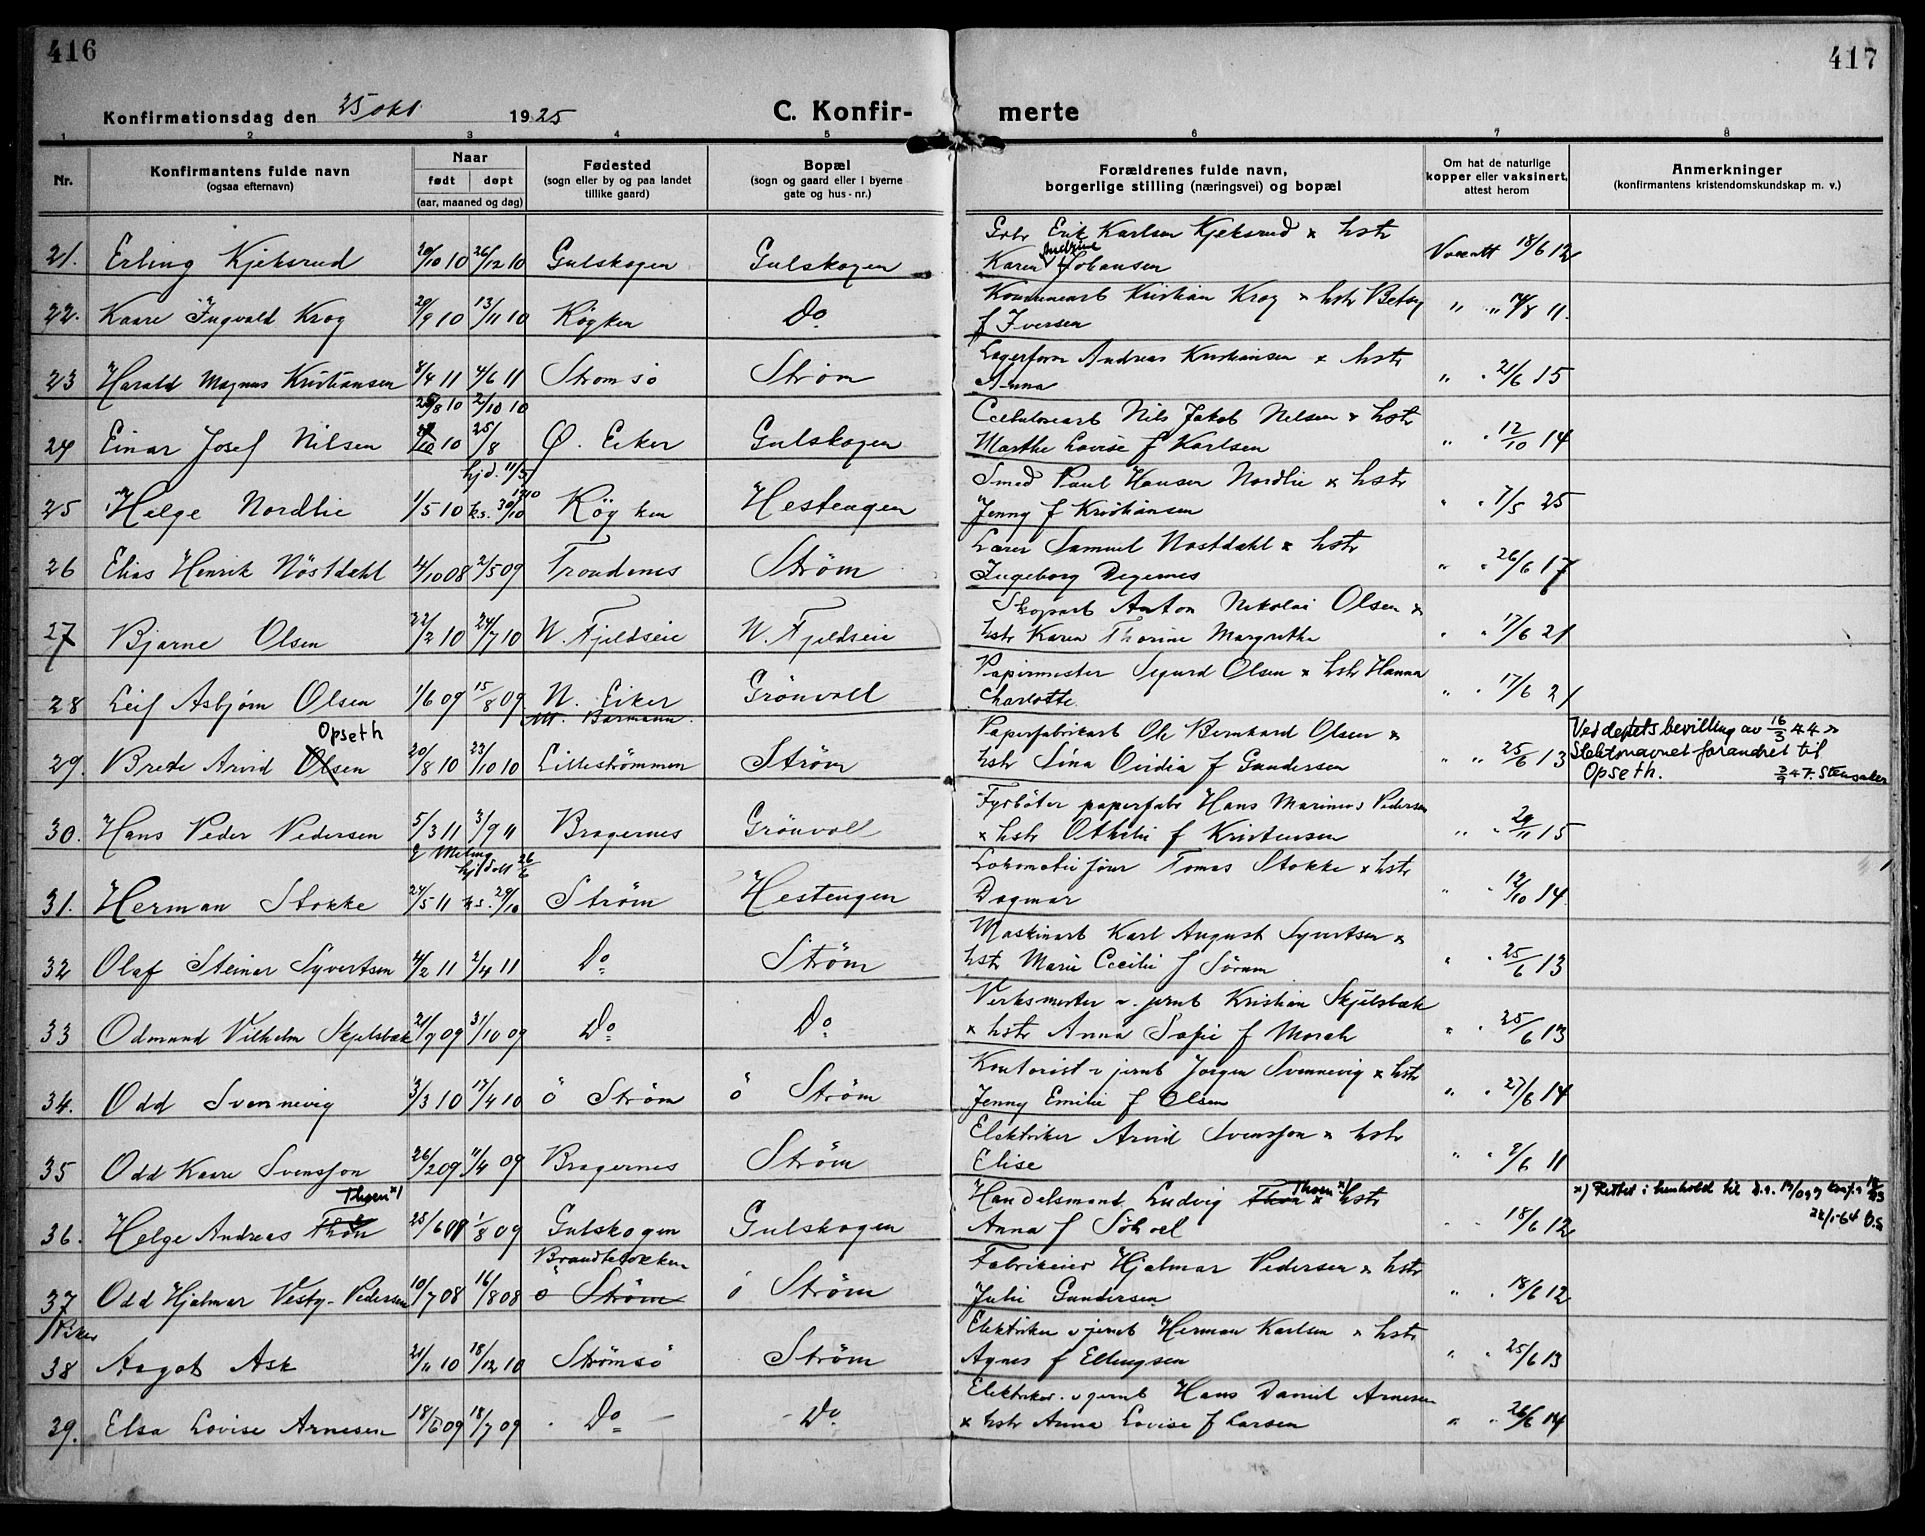 416
417
Konfirmationsdag den 25 okt 1925
C. Konfir-
merte
1 2 3 4 5 6 7 8
Nr.
Konfirmantens fulde navn
(ogsaa efternavn)
Naar
født døpt
(aar, maaned og dag)
Fødested
(sogn eller by og paa landet
tillike gaard)
Bopæl
(sogn og gaard eller i byerne
gate og hus-nr.)
Forældrenes fulde navn,
borgerlige stilling (næringsvei) og bopæl
Om hat de naturlige
kopper eller vaksinert,
attest herom
Anmerkninger
(konfirmantens kristendomskundskap m. v.)
Erik Karlsen Kjeksrud x hstr
Andrine
21. Erling Kjeksrud 20/10 10 26/12 10 Gulskogen Gulskogen Karen Johansen 18/6 12
Kristian Krog x hstr Betsy
22. Kaare Ingvald Krog 20/9 10 13/11 10 Röyken Do f Iversen " " 14/8 11.
Lagerform Andreas Kristiansen x hstr
23 Harald Magnus Kristiansen 8/4 11 4/6 11 Stromsö Strøm Anna " " 21/6 15
25/8 10 2/10 10
Nils Jakob Nelsen x hstr
24 Einar Josef Nilsen 10 25/8 Ø. Eker Gulskogen Marthe Lovise f Karlsen " " 12/10 14
hjd. 11/5
Smed Paul Hansen Nordlie x hstr
25 Helge Nordlie 1/5 10 k.s. 30/10 Röyken Hestengen Jenny f Kristiansen " " 7/5 25
Lærer Samuel Nøstdahl x hstr
26 Elias Henrik Nöstdahl 4/10 08 2/5 09 Trondenes Strøm Ingeborg Degernes " " 26/6 17
Skoparb Anton Nikolai Olsen x
27 Bjarne Olsen 22/2 10 24/7 10 N. Fjeldseie N. Fjeldseie hstr Karen Thorine Margrethe " " 17/6 21
Papirmester Sigurd Olsen x hstr Hanna
28 Leif Asbjørn Olsen 1/6 09 15/8 09 N. Eker Grönvoll Charlotte " " 17/6 21
Opseth
Paperfabrikarb Ole Bernhard Olsen x
Ved depets bevilling av 16/3 44 er
Slektsnavnet forandret til
29. Brede Arvid Olsen 20/8 10 23/10 10 Lillestrømmen Strøm hstr Lina Ovidia f Gundersen " " 25/6 13 Opseth. 3/9 47.
Fyrböter paperfabr Hans Marinius Pedersen
30. Hans Peder Pedersen 5/3 11 3/9 11 Bragernes Grönvoll x hstr Othelie f Kristensen " " 29/11 15
hjdøbt 26/6
Tomas Stokke x hstr
31. Herman Stokke 27/5 11 k.s. 29/10 Strøm Hestengen Dagmar " " 12/10 14
Maskinarb Karl August Syvertsen x
32 Olaf Steinar Syvertsen 4/2 11 2/4 11 Do Strøm hstr Marie Cecilie f Sörum " " 25/6 13
Verksmester v. jernb Kristian Skjelsbæk
33 Odmund Vilhelm Skjelsbæk 21/9 09 31/10 09 Do Do x hstr Anna Sofie f Morch " " 25/6 13
Kontorist v jernb Jørgen Svennevig x hstr
34. Odd Svennevig 3/3 10 17/4 10 ö Strøm ö Strøm Jenny Emilie f Olsen " " 27/6 14
Elektriker Arvid Svensson x hstr
35 Odd Kaare Svensson 26/2 09 11/4 09 Bragernes Strøm Elise " " 2/6 11
Thoen x)
Handelsmand Ludvig Thon Thoen x) x hstr
x) Rettet i henhold til
36. Helge Andreas Thon 25/6 08 1/8 09 Gulskogen Gulskogen Anna f " " 18/6 12 22/1-64
Fabrikeier Hjalmar Pedersen x hstr
37 Odd Hjalmar Vesty-Pedersen 10/7 08 16/8 08 ö Strøm ö Strøm Julie Gundersen " " 18/6 12
Piker
Elektriker v jernb Herman Karlsen x hstr
38 Aagot Ask 21/11 10 18/12 10 Strømsö Strøm Agnes f Ellingsen " " 25/6 13
Elektriker v jernb Hans Daniel Arnesen
39. Elsa Lovise Arnesen 18/5 09 18/7 09 Do Do x hstr Anna Lovise f Larsen " " 26/6 14